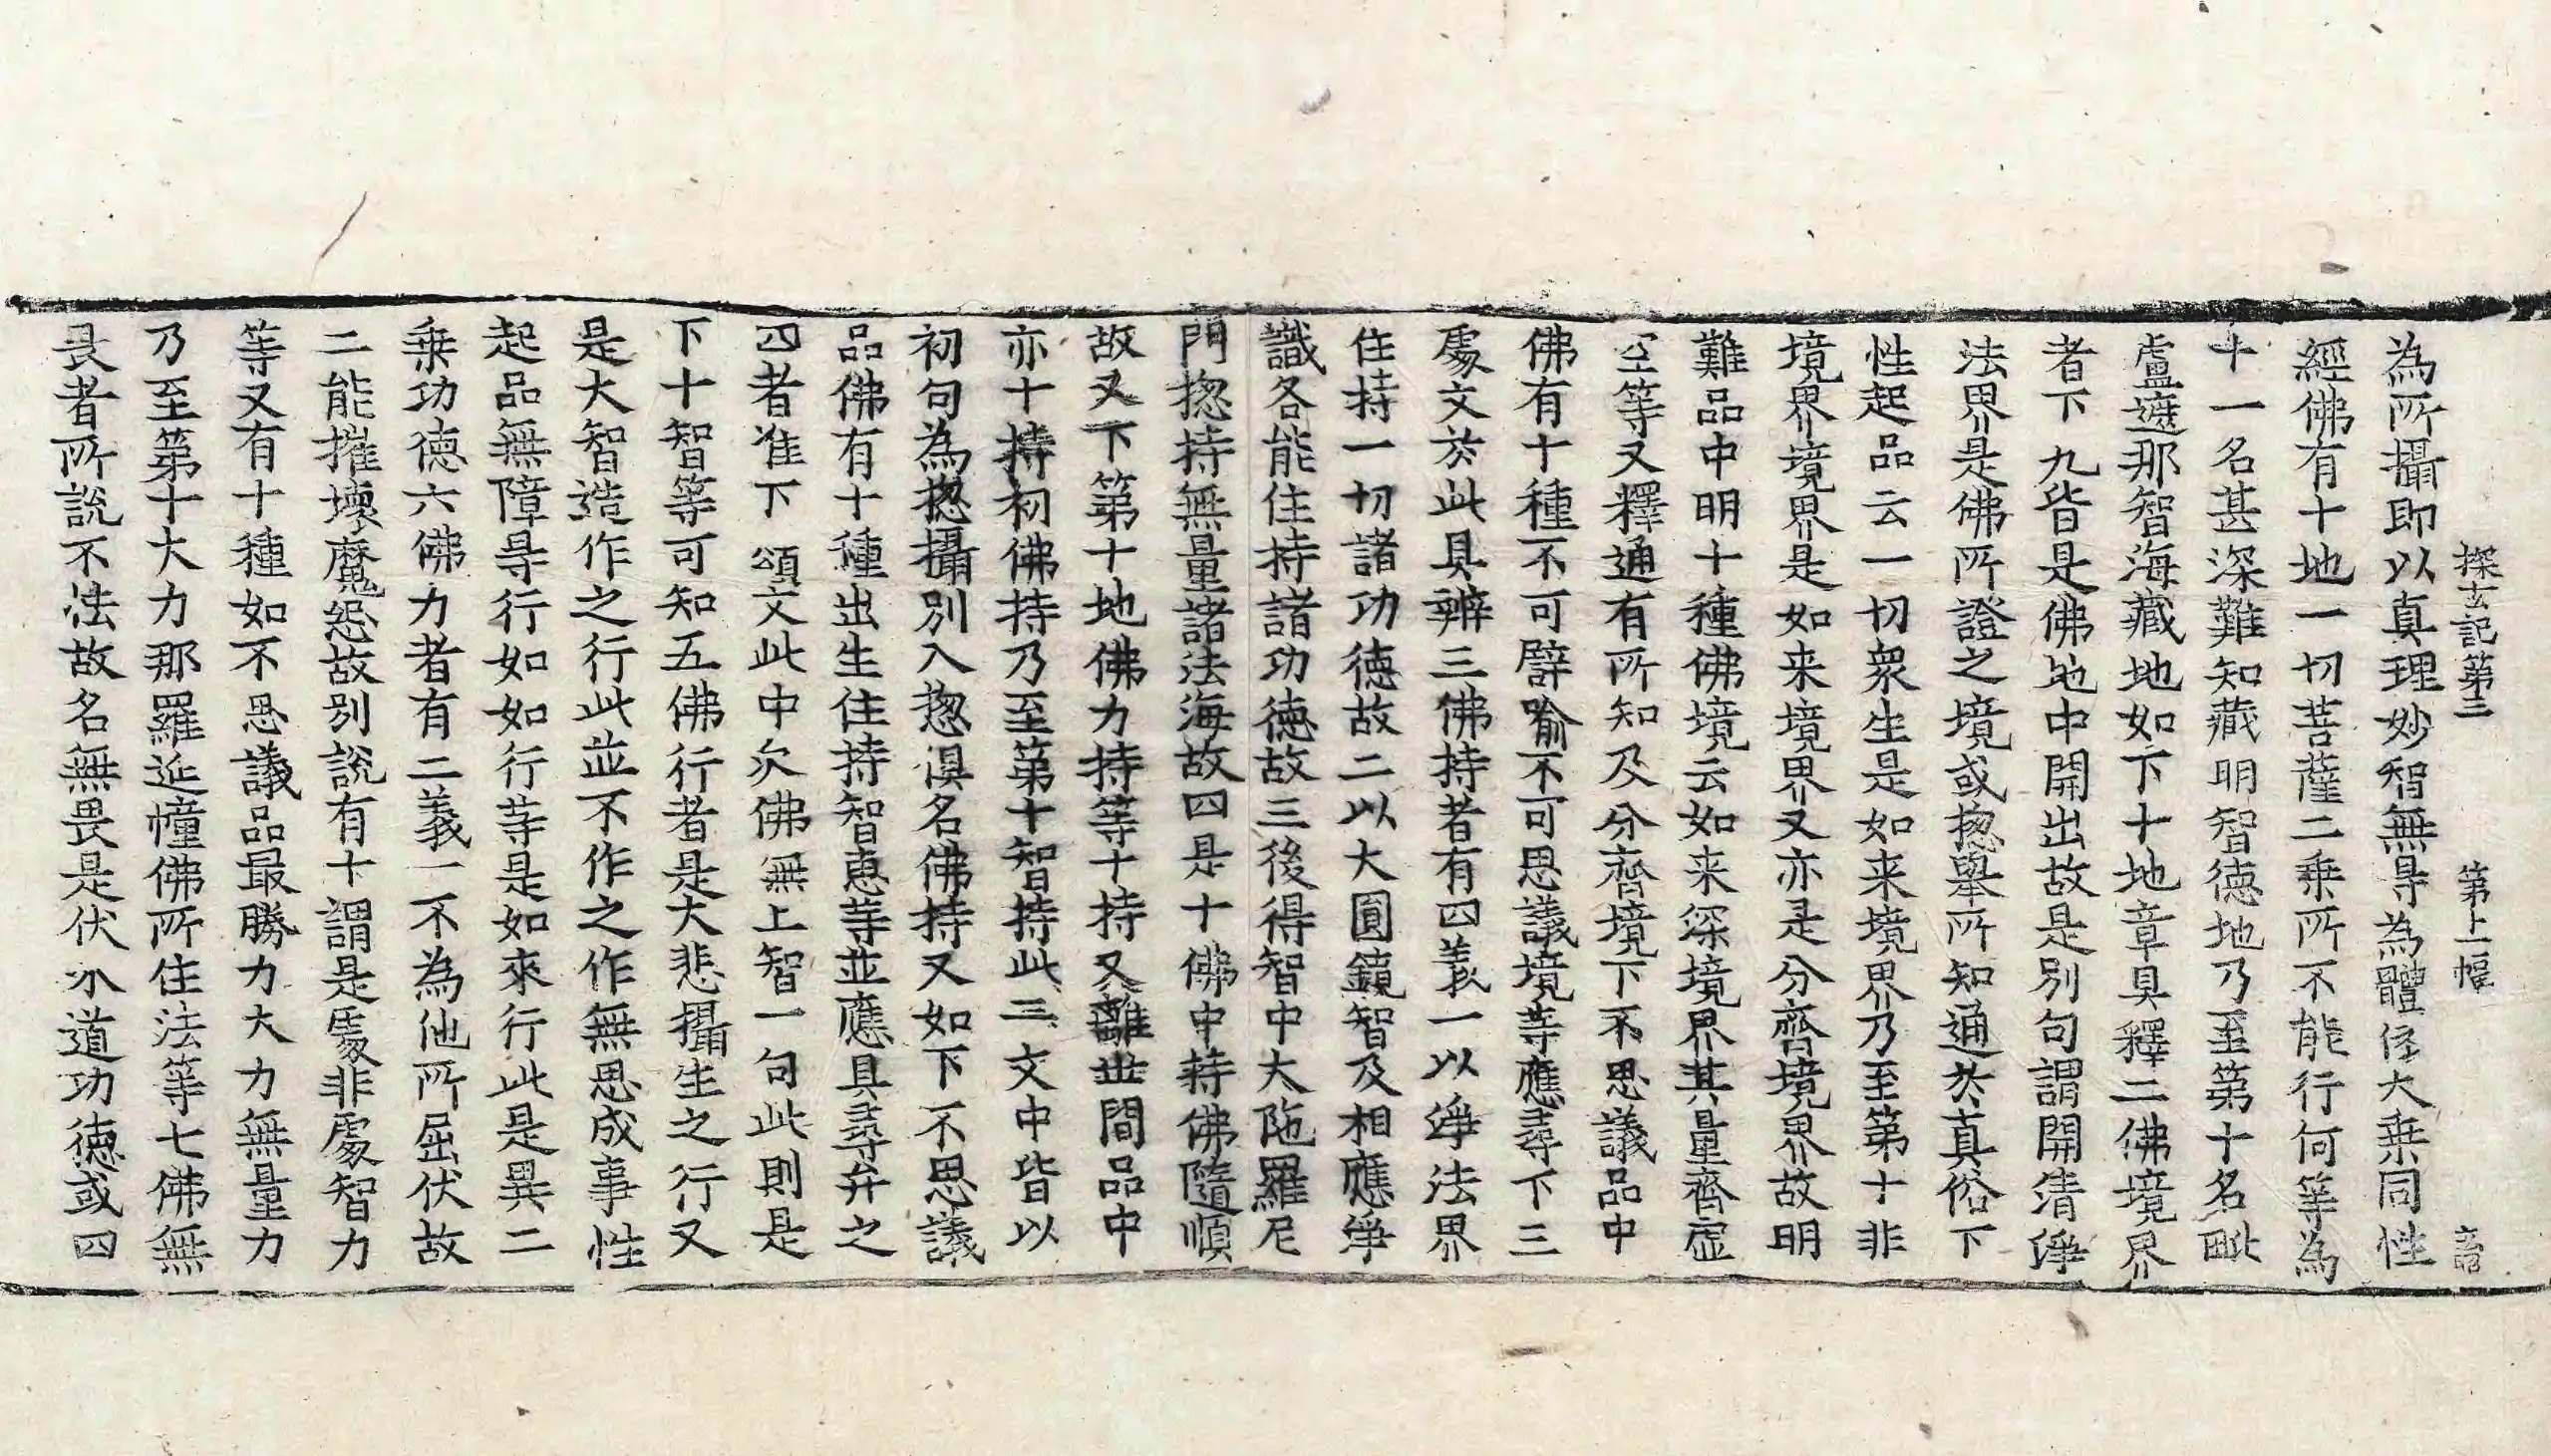 探玄記第三　第上一幅　音
為所攝即以真理妙智無㝵為體任大乘同性
經佛有十地一切菩薩二乘所不能行何等為
十一名甚深難知藏明智德地乃至第十名毗
盧遮那智海藏地如下十地章具釋二佛境界
者下九皆是佛地中開出故是別句謂開清淨
法界是佛所證之境或揔舉所知通於真俗下
性起品云一切衆生是如来境界乃至第十非
境界境界是如来境界又亦是分齊境界故明
難品中明十種佛境云如来深境界其量齊虛
空等又釋通有所知及分齊境下不思議品中
佛有十種不可譬喻不可思議境等應尋下三
處文於此具辨三佛持者有四義一以淨法界
住持一切諸功德故二以大圓鏡智及相應淨
識各能住持諸功德故三後得智中大陁羅尼
門揔持無量諸法海故四是十佛中持佛隨順
故又下第十地佛力持等十持又離世間品中
亦十持初佛持乃至第十智持此三文中皆以
初句為揔攝別入揔俱名佛持又如下不思議
品佛有十種出生住持智惠等並應具尋弁之
四者准下頌文此中欠佛無上智一句此則是
下十智等可知五佛行者是大悲攝生之行又
是大智造作之行此並不作之作無思成事性
起品無障㝵行如如行等是如來行此是異二
乘功德六佛力者有二義一不為他所屈伏故
二能摧壞魔怨故別說有十謂是處非處智力
等又有十種如不思議品最勝力大力無量力
乃至第十大力那羅延幢佛所住法等七佛無
畏者所說不法故名無畏是伏外道功德或四